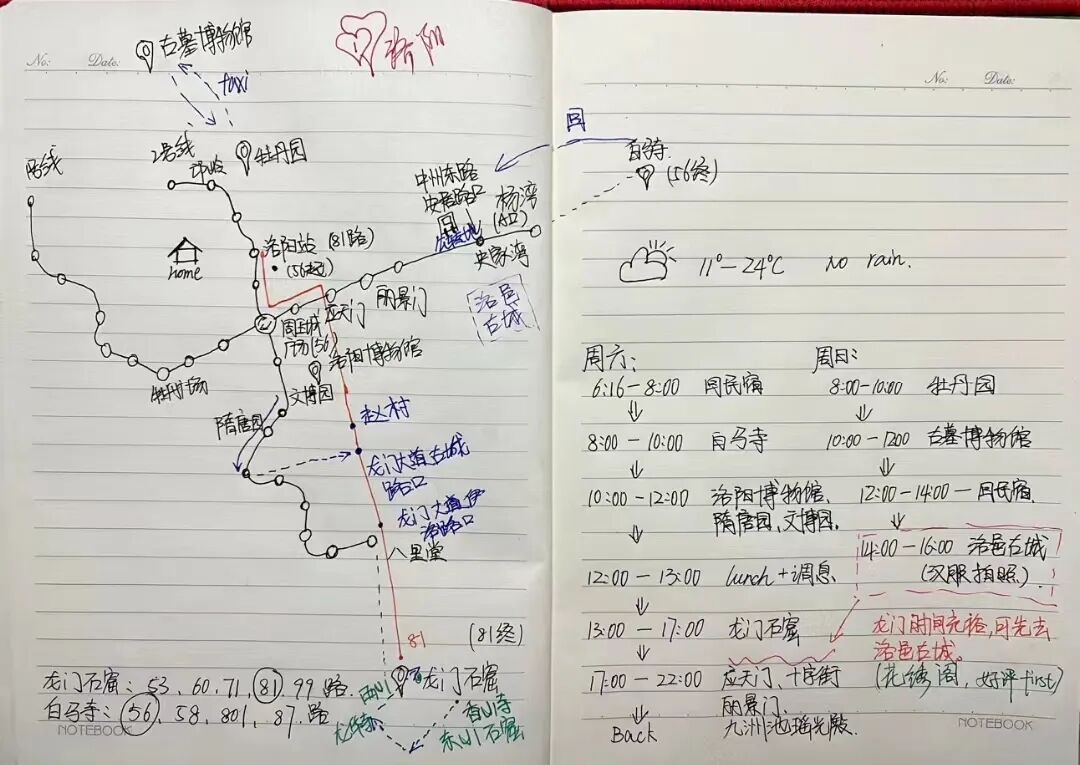 No:
Date:
古墓博物馆
洛阳
taxi
1号线
2号线
牡丹园
洛阳站
(81路)
(56起)
home
中州东路
史居路口
杨湾
(A口)
史家湾
丽景门
应天门
周王城
广场(56)
洛邑
古城
洛阳博物馆
牡丹广场
文博园
隋唐园
赵村
龙门大道古城
路口
龙门大道伊
洛路口
八里堂
81
(81终)
龙门石窟
西山
香山寺
东山石窟
龙门石窟: 53、60、71、81、99 路.
白马寺: 56、58、801、87、路
NOTEBOOK
No:
Date:
回
白马寺.
(56终)
11°—24°C No rain.
周六:
6:16-8:00 回民宿
8:00-10:00 白马寺
10:00-12:00 洛阳博物馆、
隋唐园、文博园.
12:00-13:00 lunch+调息
13:00-17:00 龙门石窟
17:00-22:00 应天门、十字街
丽景门、
九洲池瑶光殿.
Back
周日:
8:00-10:00 牡丹园
10:00-1200 古墓博物馆
12:00-14:00-回民宿.
14:00-16:00 洛邑古城
(汉服拍照).
龙门时间充裕,可先去
洛邑古城。
(花绣阁,好评first)
NOTEBOOK